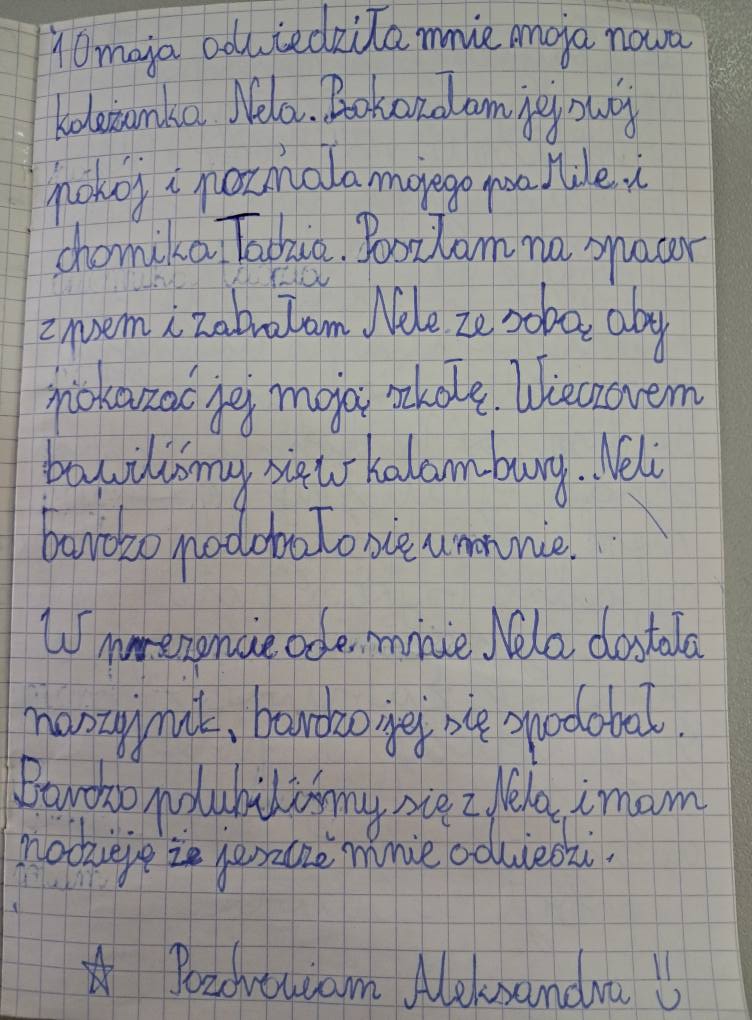 10 maja odwiedziła mnie moja nowa
koleżanka Nela. Pokazałam jej swój
pokój i poznała mojego psa Mile i
chomika Tadzia. Poszłam na spacer
z psem i zabrałam Nele ze sobą aby
pokazać jej moją szkołę. Wieczorem
bawiliśmy się w kalambury. Neli
bardzo podobało się u mnie.
W prezencie ode mnie Nela dostała
naszyjnik, bardzo jej się spodobał.
Bardzo polubiliśmy się z Nelą i mam
nadzieję że jeszcze mnie odwiedzi.
☆ Pozdrowiam Aleksandra